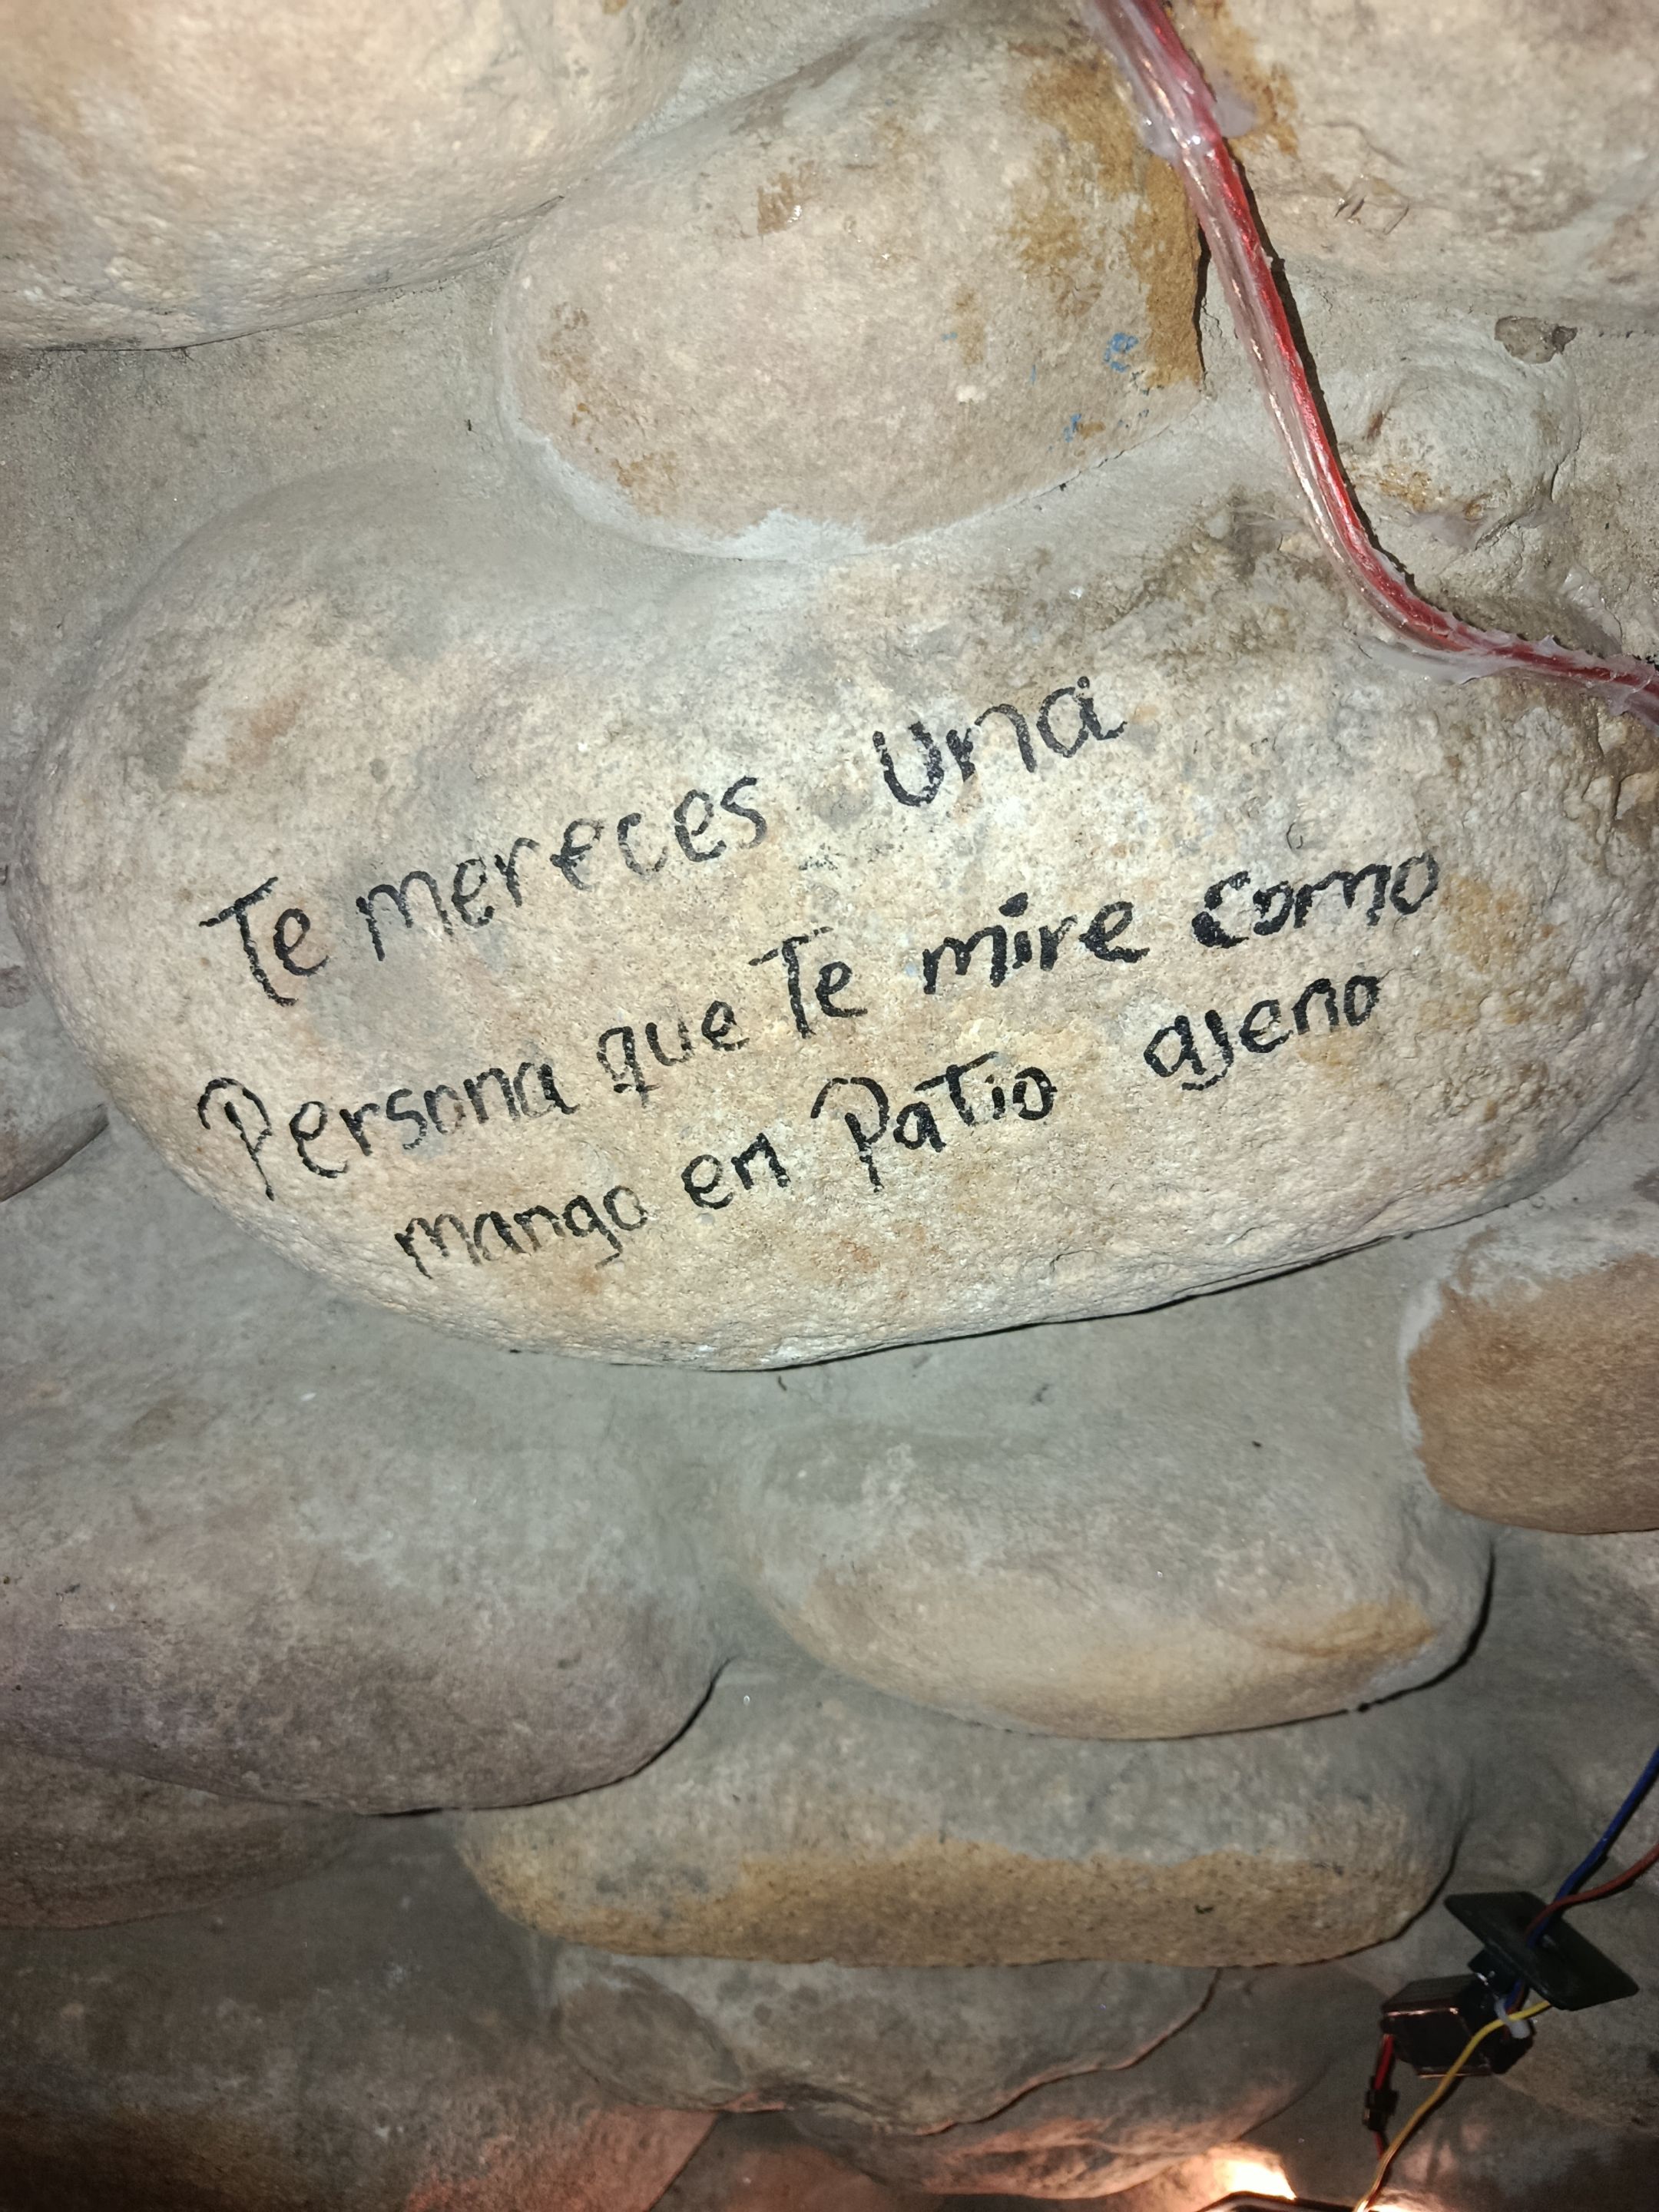 Te mereces una
Persona que Te mire como
mango en PaTio ajeno